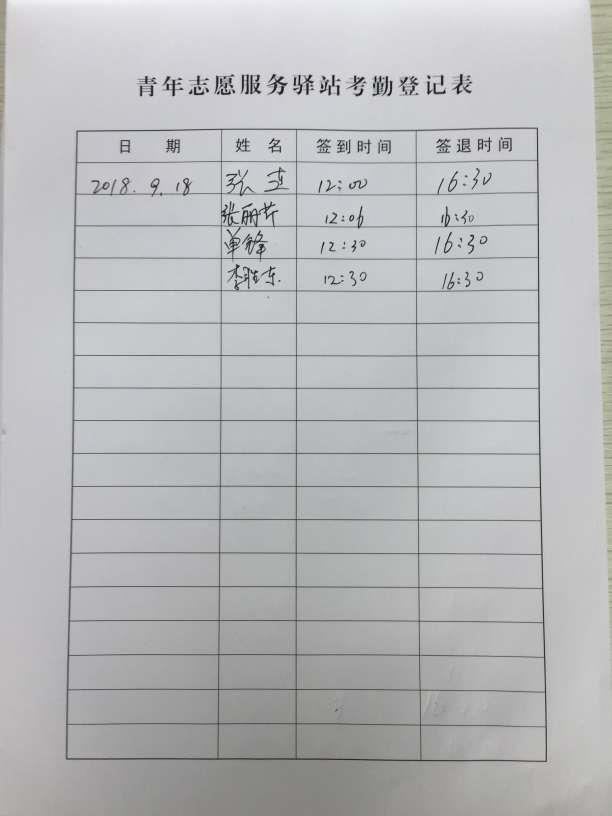 青年志愿服务驿站考勤登记表
日期 姓名 签到时间 签退时间
2018.9.18 张 12:00 16:30
张丽芹 12:06 16:30
单锋 12:30 16:30
李胜东 12:30 16:30